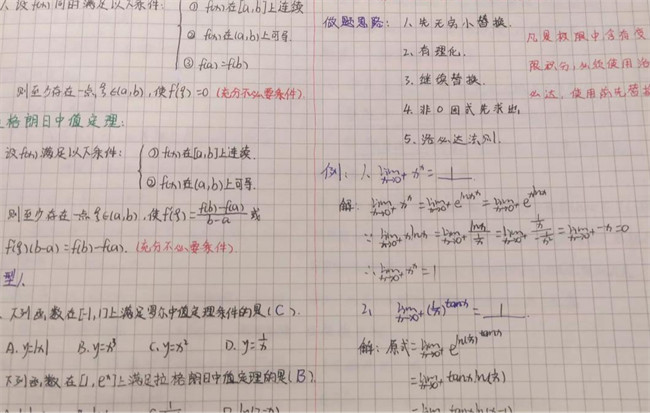 设f(x)同时满足以下条件:
① f(x)在[a,b]上连续
② f(x)在(a,b)上可导
③ f(a)=f(b)
则至少存在一点ξ∈(a,b),使f'(ξ)=0 (充分不必要条件).
格朗日中值定理:
设f(x)满足以下条件:
① f(x)在[a,b]上连续.
② f(x)在(a,b)上可导.
则至少存在一点ξ∈(a,b),使f'(ξ)=\frac{f(b)-f(a)}{b-a} 或
f'(ξ)(b-a)=f(b)-f(a). (充分不必要条件)
型1、
下列函数在[-1,1]上满足罗尔中值定理条件的是(C).
A. y=|x| B. y=x³ C. y=x² D. y=\frac{1}{x}
下列函数在[1,eⁿ]上满足拉格朗日中值定理的是(B)
做题思路: 1. 先无穷小替换.
2. 有理化.
3. 继续替换.
4. 非0因式先求出.
5. 洛必达法则.
凡是极限中含有变
限积分,必须使用洛
必达,使用前先替换
例: 1、 \lim_{x→0^+} x^x = 1
解: \lim_{x→0^+} x^x = \lim_{x→0^+} e^{\ln x^x} = \lim_{x→0^+} e^{x\ln x}
∵ \lim_{x→0^+} x\ln x = \lim_{x→0^+} \frac{\ln x}{\frac{1}{x}} = \lim_{x→0^+} \frac{\frac{1}{x}}{-\frac{1}{x^2}} = \lim_{x→0^+} -x = 0
∴ \lim_{x→0^+} x^x = 1
2、 \lim_{x→0^+} (\frac{1}{x})^{\tan x} = 1
解: 原式 = \lim_{x→0^+} e^{\ln(\frac{1}{x})^{\tan x}}
= \lim_{x→0^+} \tan x \ln(\frac{1}{x})